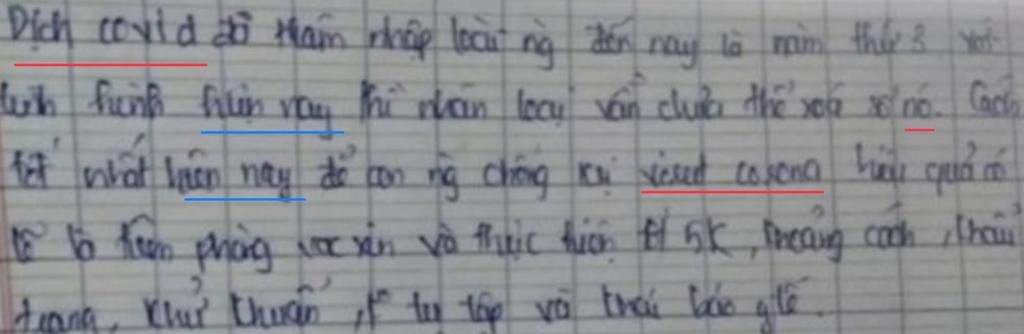 Dịch covid đã thâm nhập loài ng đến nay là năm thứ 3 với
tình hình hiện nay thì nhân loại vẫn chưa thể xoá xổ nó. Cách
tốt nhất hiện nay để con ng chống lại virut corona hiệu quả có
lẽ là tiêm phòng vac xin và thực hiện tốt 5K, khoảng cách, khẩu
trang, khử khuẩn, k tụ tập và khai báo y tế.